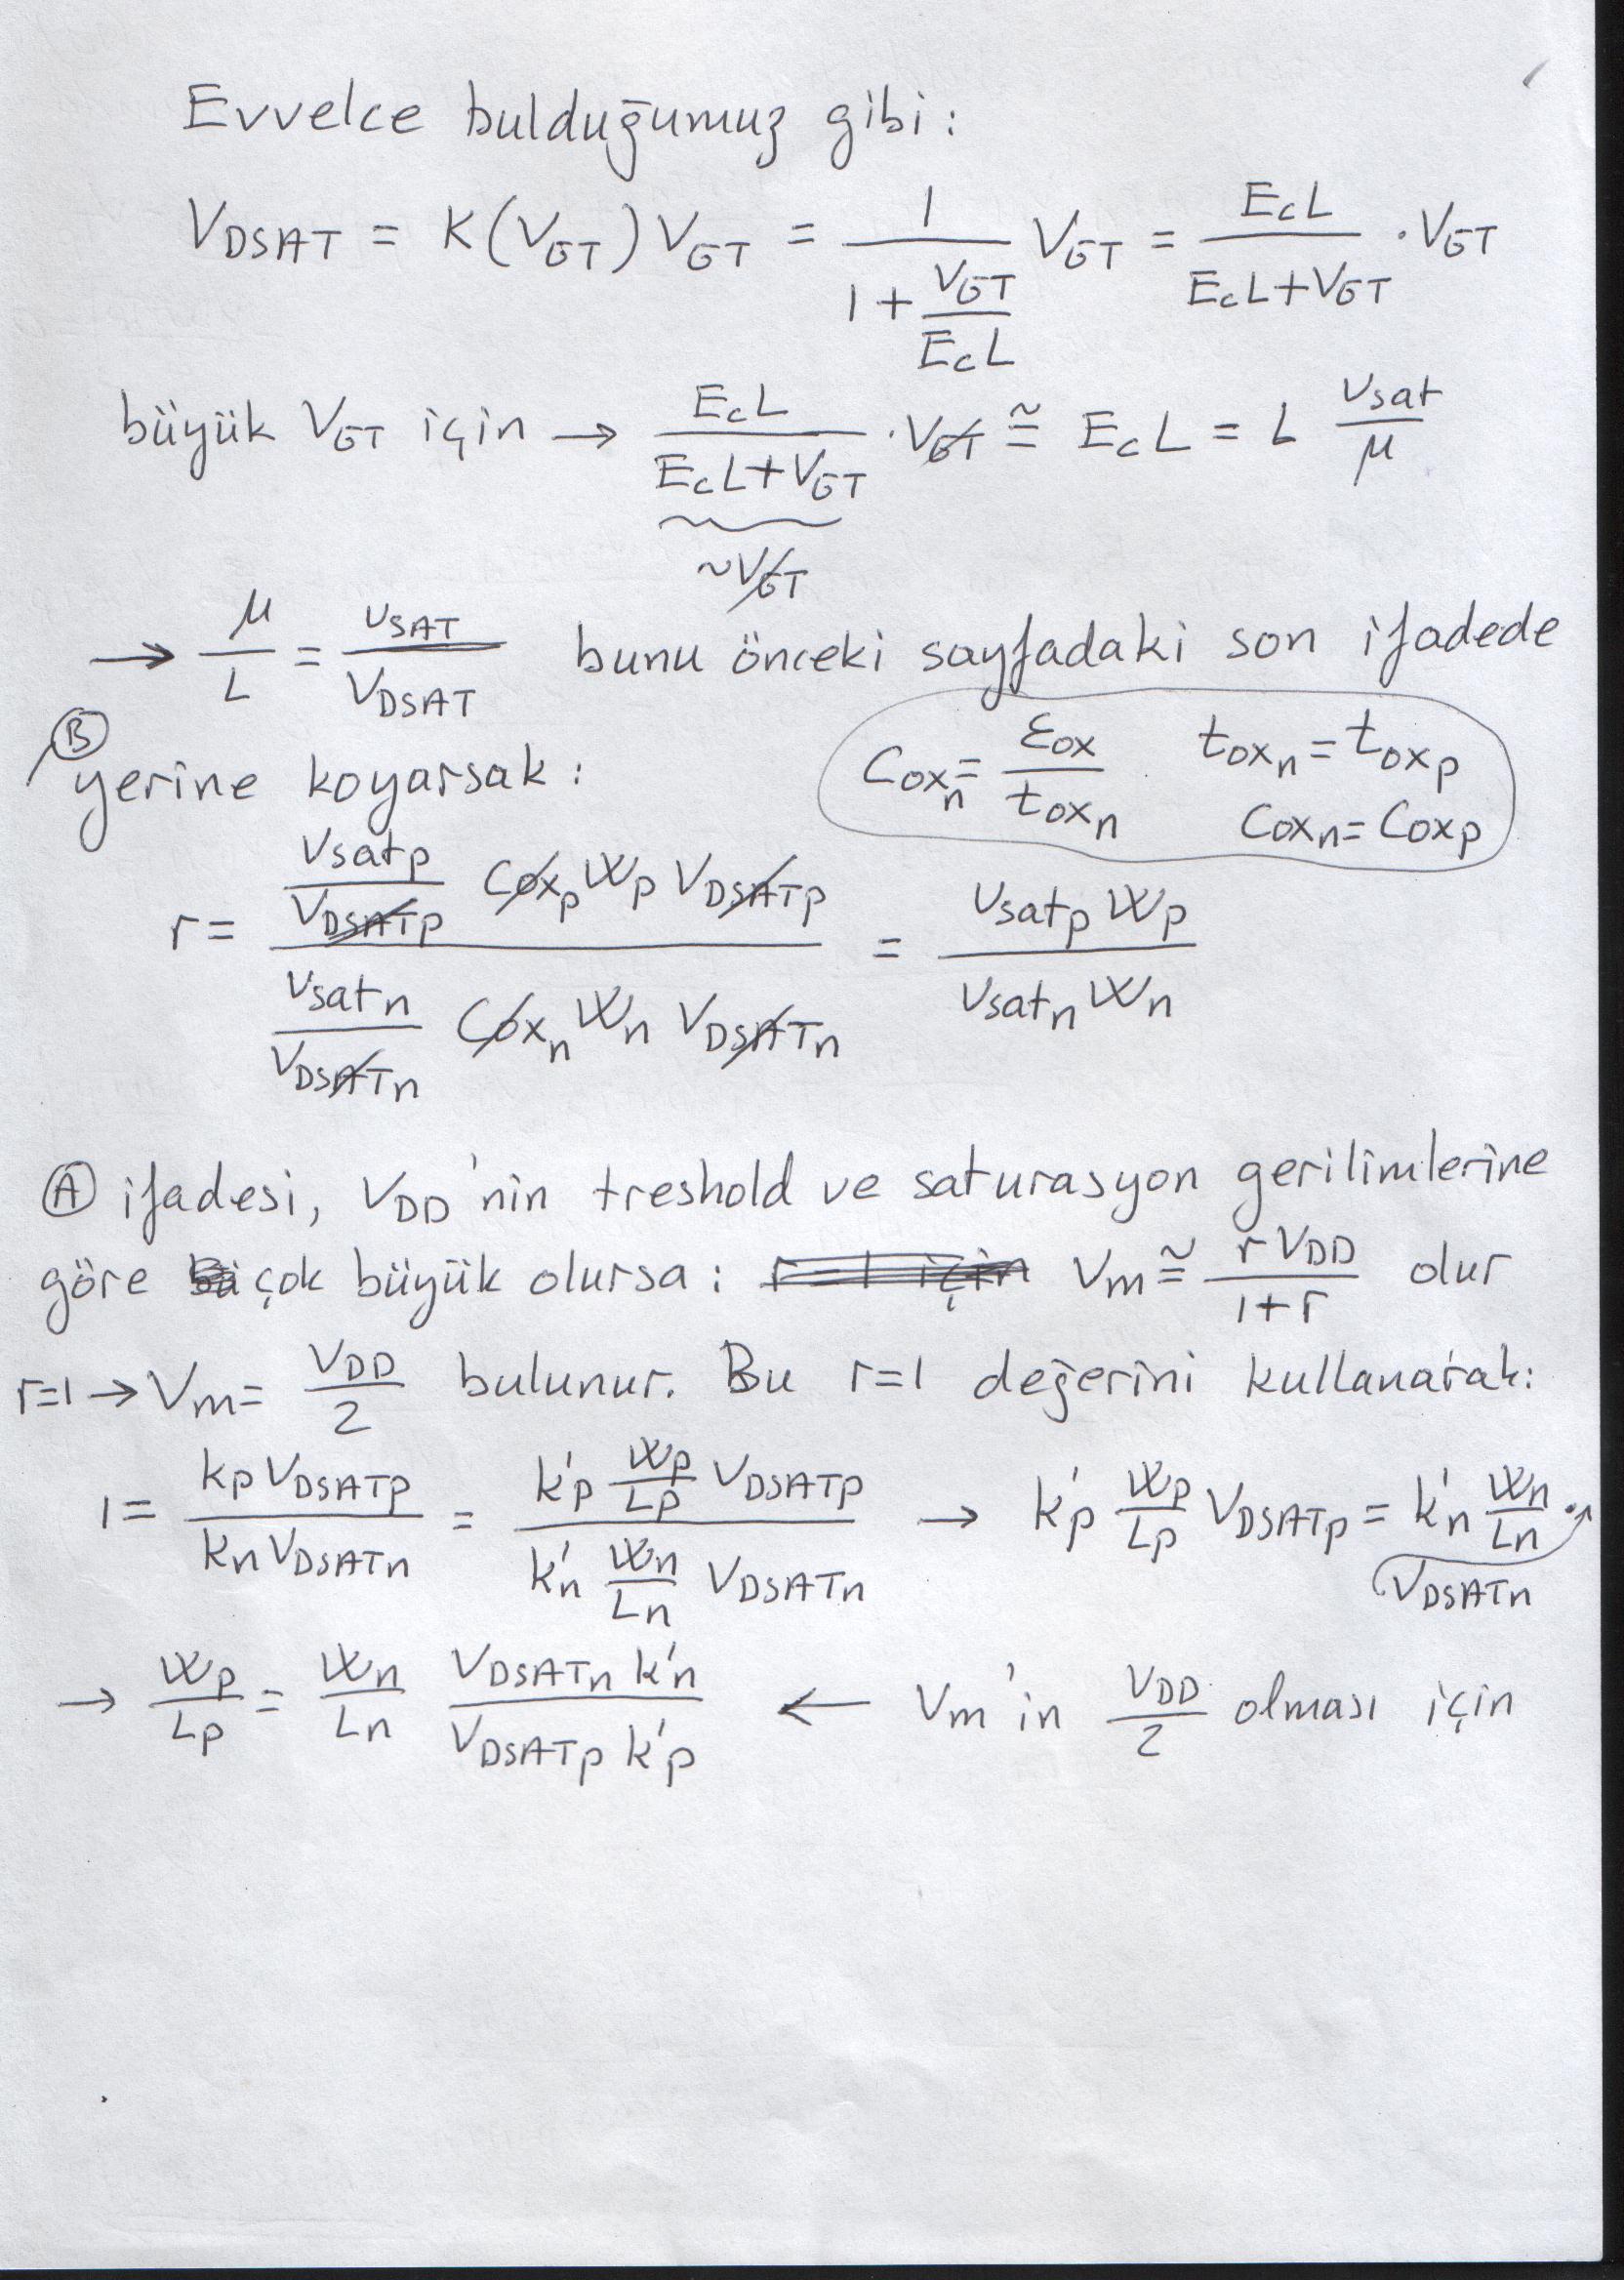 Evvelce bulduğumuz gibi:
V_DSAT = K(V_GT) V_GT = \frac{1}{1 + \frac{V_GT}{E_c L}} V_GT = \frac{E_c L}{E_c L + V_GT} · V_GT
büyük V_GT için → \frac{E_c L}{E_c L + V_GT} · V_GT ≅ E_c L = L \frac{v_sat}{μ}
~V_GT
→ \frac{μ}{L} = \frac{v_SAT}{V_DSAT} bunu önceki sayfadaki son ifadede
Ⓑ
yerine koyarsak :
C_oxn = \frac{ε_ox}{t_oxn} t_oxn = t_oxp
C_oxn = C_oxp
r = \frac{\frac{v_satp}{V_DSATp} C_oxp W_p V_DSATp}{\frac{v_satn}{V_DSATn} C_oxn W_n V_DSATn} = \frac{v_satp W_p}{v_satn W_n}
Ⓐ ifadesi, V_DD'nin treshold ve saturasyon gerilimlerine
göre çok büyük olursa : r=1 için V_m ≅ \frac{r V_DD}{1+r} olur
r=1 → V_m = \frac{V_DD}{2} bulunur. Bu r=1 değerini kullanarak:
1 = \frac{k_p V_DSATp}{k_n V_DSATn} = \frac{k'_p \frac{W_p}{L_p} V_DSATp}{k'_n \frac{W_n}{L_n} V_DSATn} → k'_p \frac{W_p}{L_p} V_DSATp = k'_n \frac{W_n}{L_n} ·
V_DSATn
→ \frac{W_p}{L_p} = \frac{W_n}{L_n} \frac{V_DSATn k'_n}{V_DSATp k'_p} ← V_m'in \frac{V_DD}{2} olması için